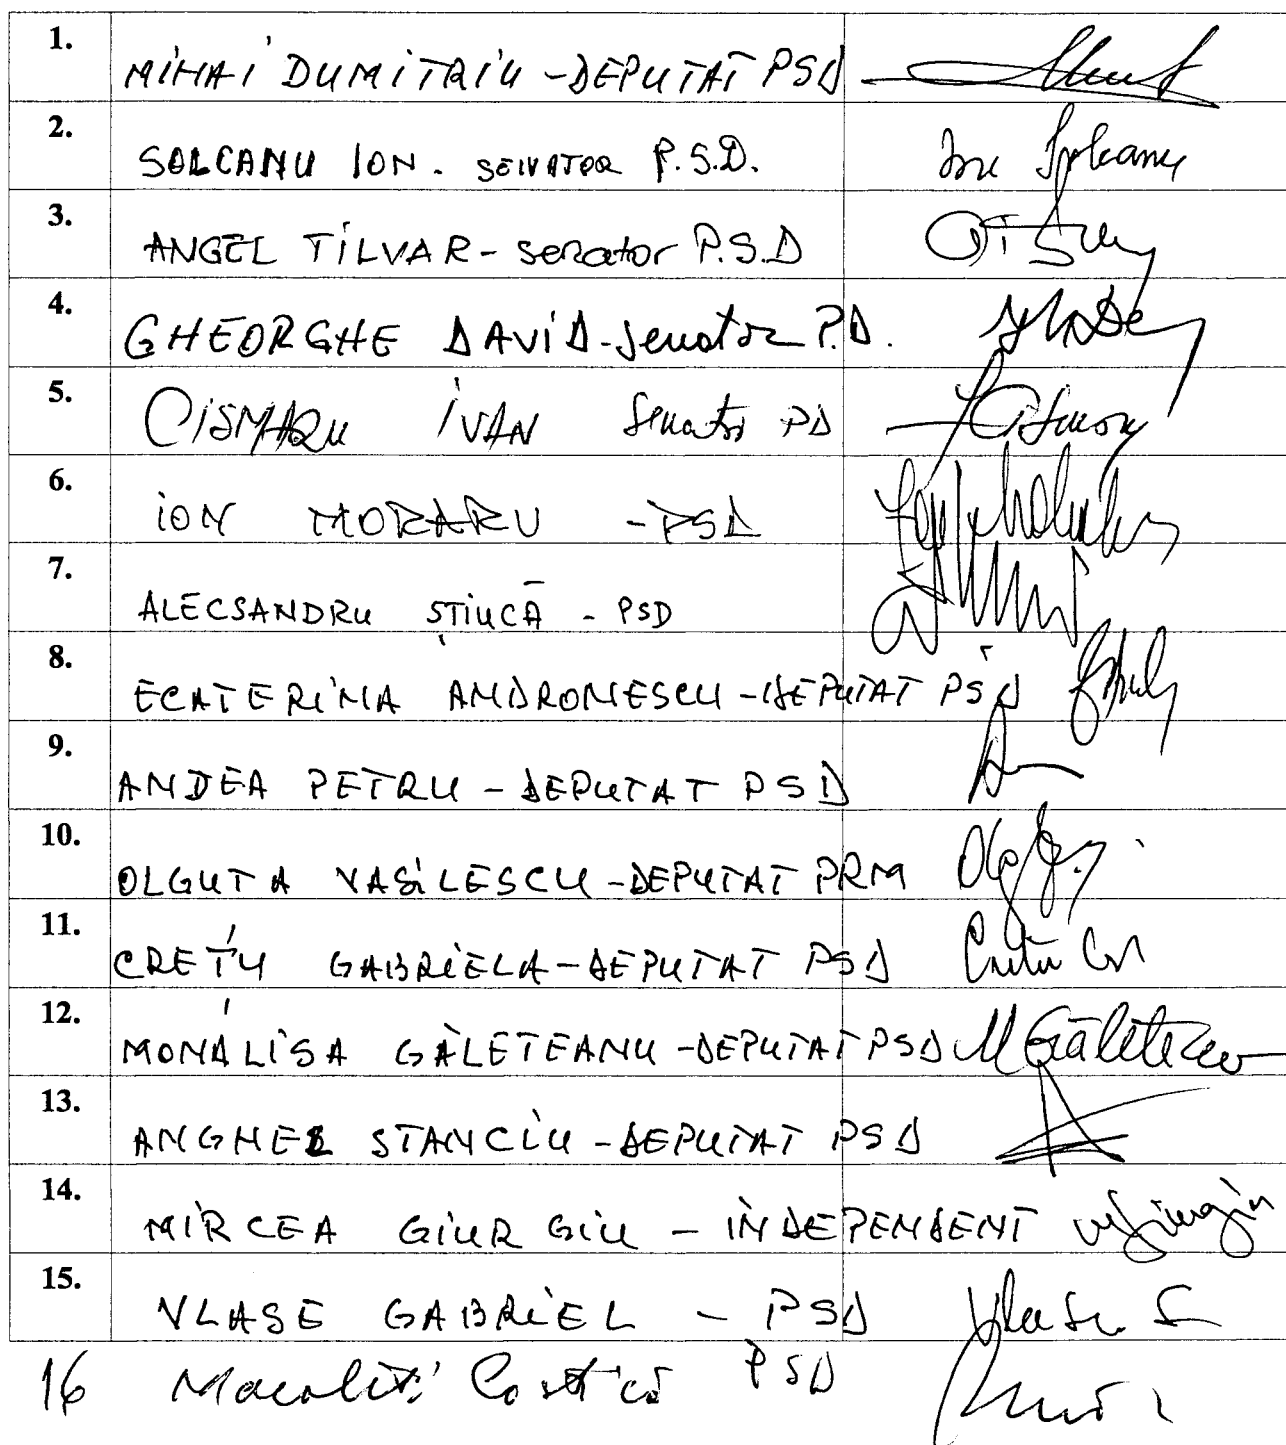 1. MIHAI DUMITRIU - DEPUTAT PSD
2. SOLCANU ION. SENATOR P.S.D. Ion Solcanu
3. ANGEL TILVAR - senator P.S.D
4. GHEORGHE DAVID - senator P.D.
5. CISMARU IVAN Senator PD
6. ION MORARU - PSD
7. ALECSANDRU STIUCĂ - PSD
8. ECATERINA ANDRONESCU - DEPUTAT PSD
9. ANDEA PETRU - DEPUTAT PSD
10. OLGUTA VASILESCU - DEPUTAT PRM
11. CRETU GABRIELA - DEPUTAT PSD
12. MONALISA GĂLETEANU - DEPUTAT PSD M Găleteanu
13. ANGHEL STANCIU - DEPUTAT PSD
14. MIRCEA GIURGIU - INDEPENDENT
15. VLASE GABRIEL - PSD
16 Costică PSD